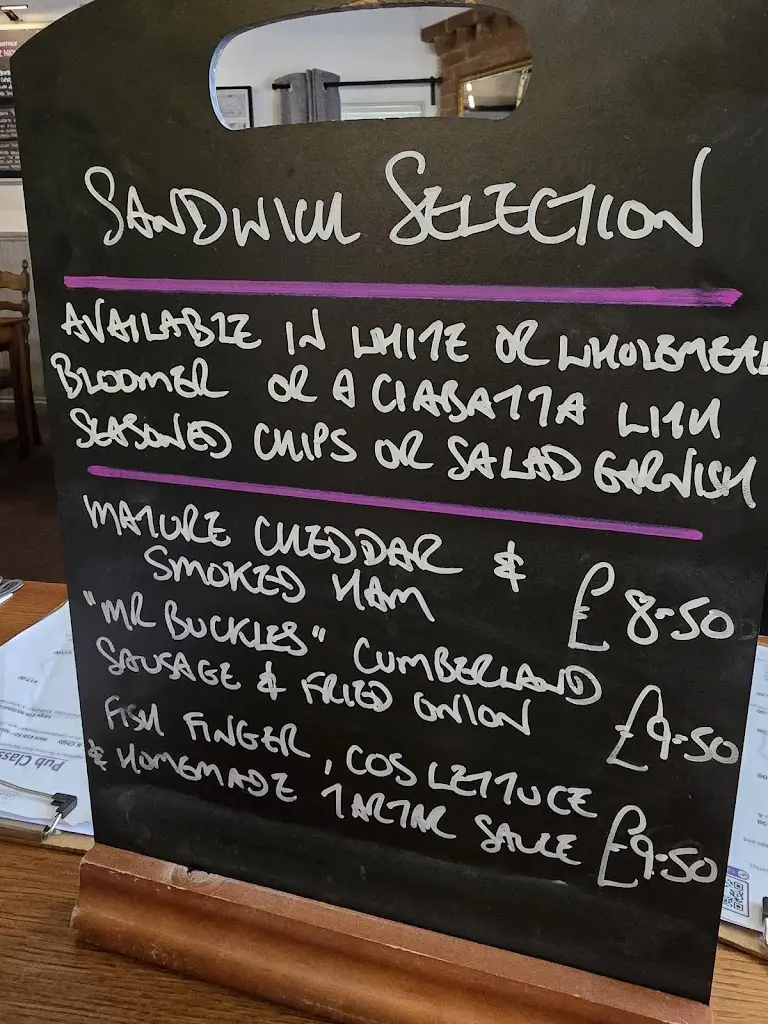 SANDWICH SELECTION
AVAILABLE IN WHITE OR WHOLEMEAL
BLOOMER OR A CIABATTA WITH
SEASONED CHIPS OR SALAD GARNISH
MATURE CHEDDAR &
SMOKED HAM £8.50
"MR BUCKLES" CUMBERLAND
SAUSAGE & FRIED ONION £9.50
FISH FINGER, COS LETTUCE
& HOMEMADE TARTAR SAUCE £9.50
Pub Class